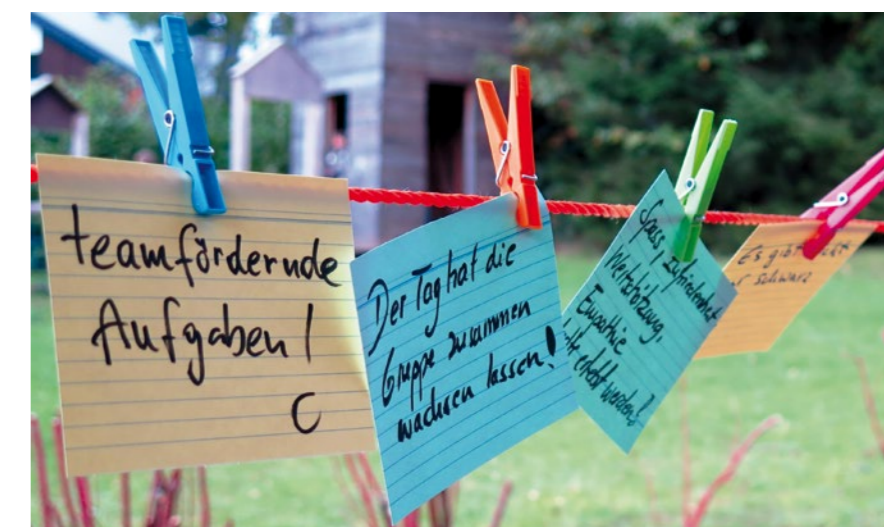 teamfördernde
Aufgaben!
C
Der Tag hat die
Gruppe zusammen
wachsen lassen!
Spass, Zufriedenheit
Wertschätzung,
Empathie
erlebt werden!
Es gibt
schwarz